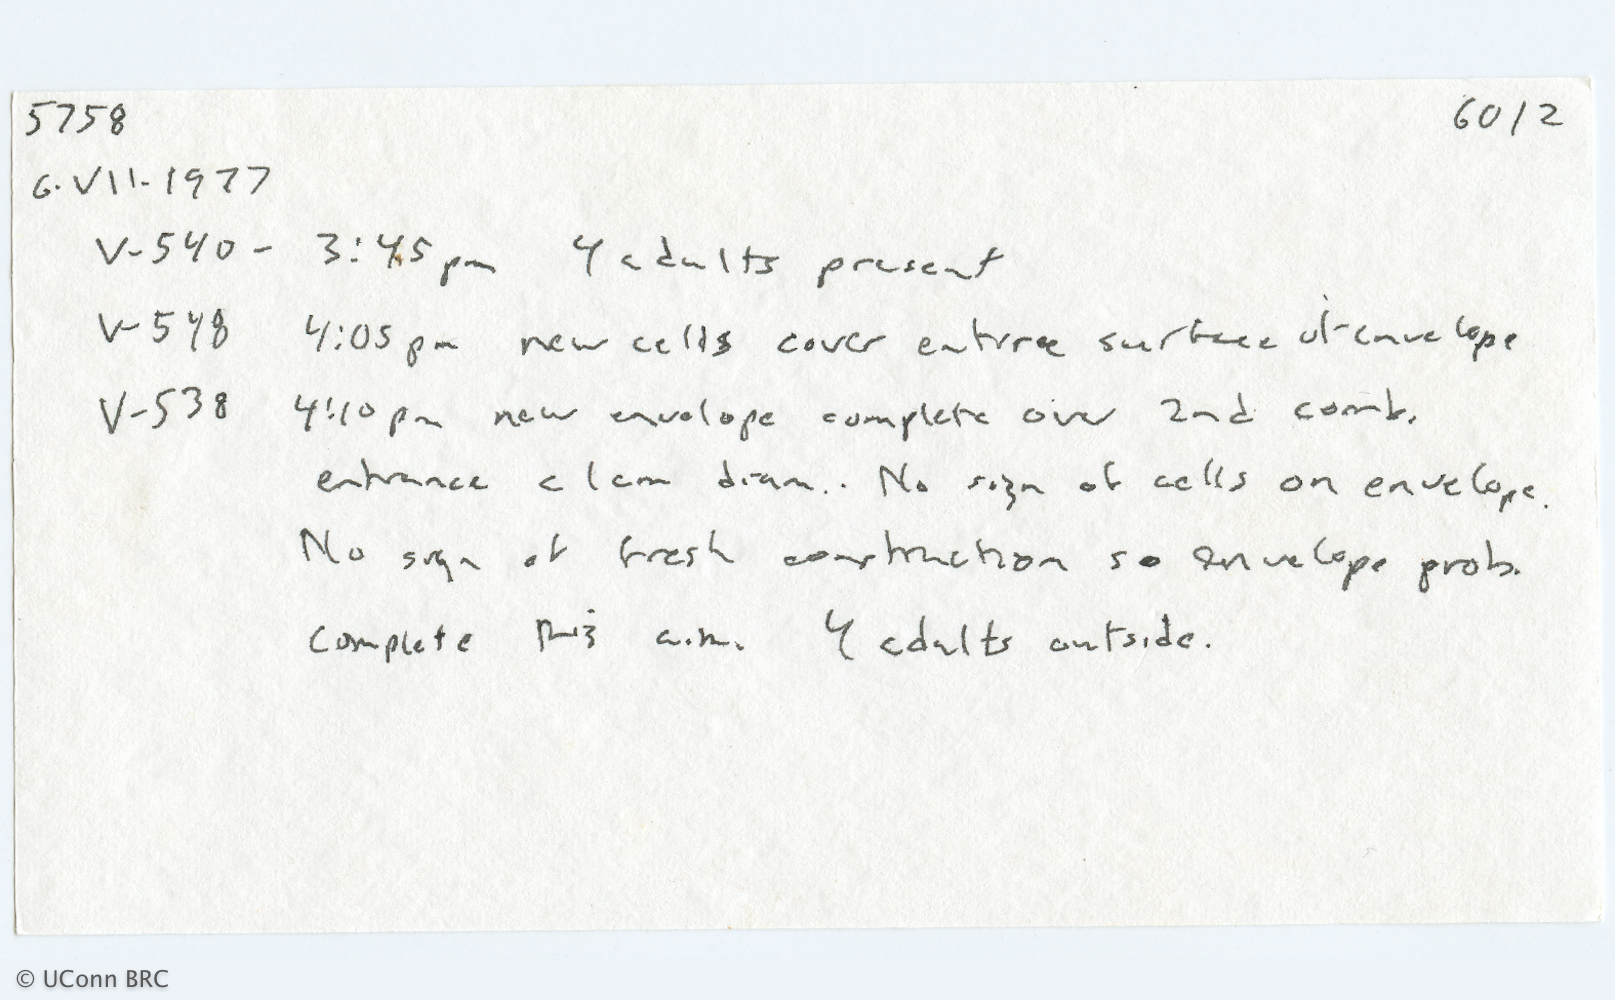 5758 6012
6.VII.1977
V-540 - 3:45 pm 4 adults present
V-548 4:05 pm new cells cover entire surface of envelope
V-538 4:10 pm new envelope complete over 2nd comb.
entrance c 1 cm diam.. No sign of cells on envelope.
No sign of fresh construction so envelope prob.
complete this a.m. 4 adults outside.
© UConn BRC